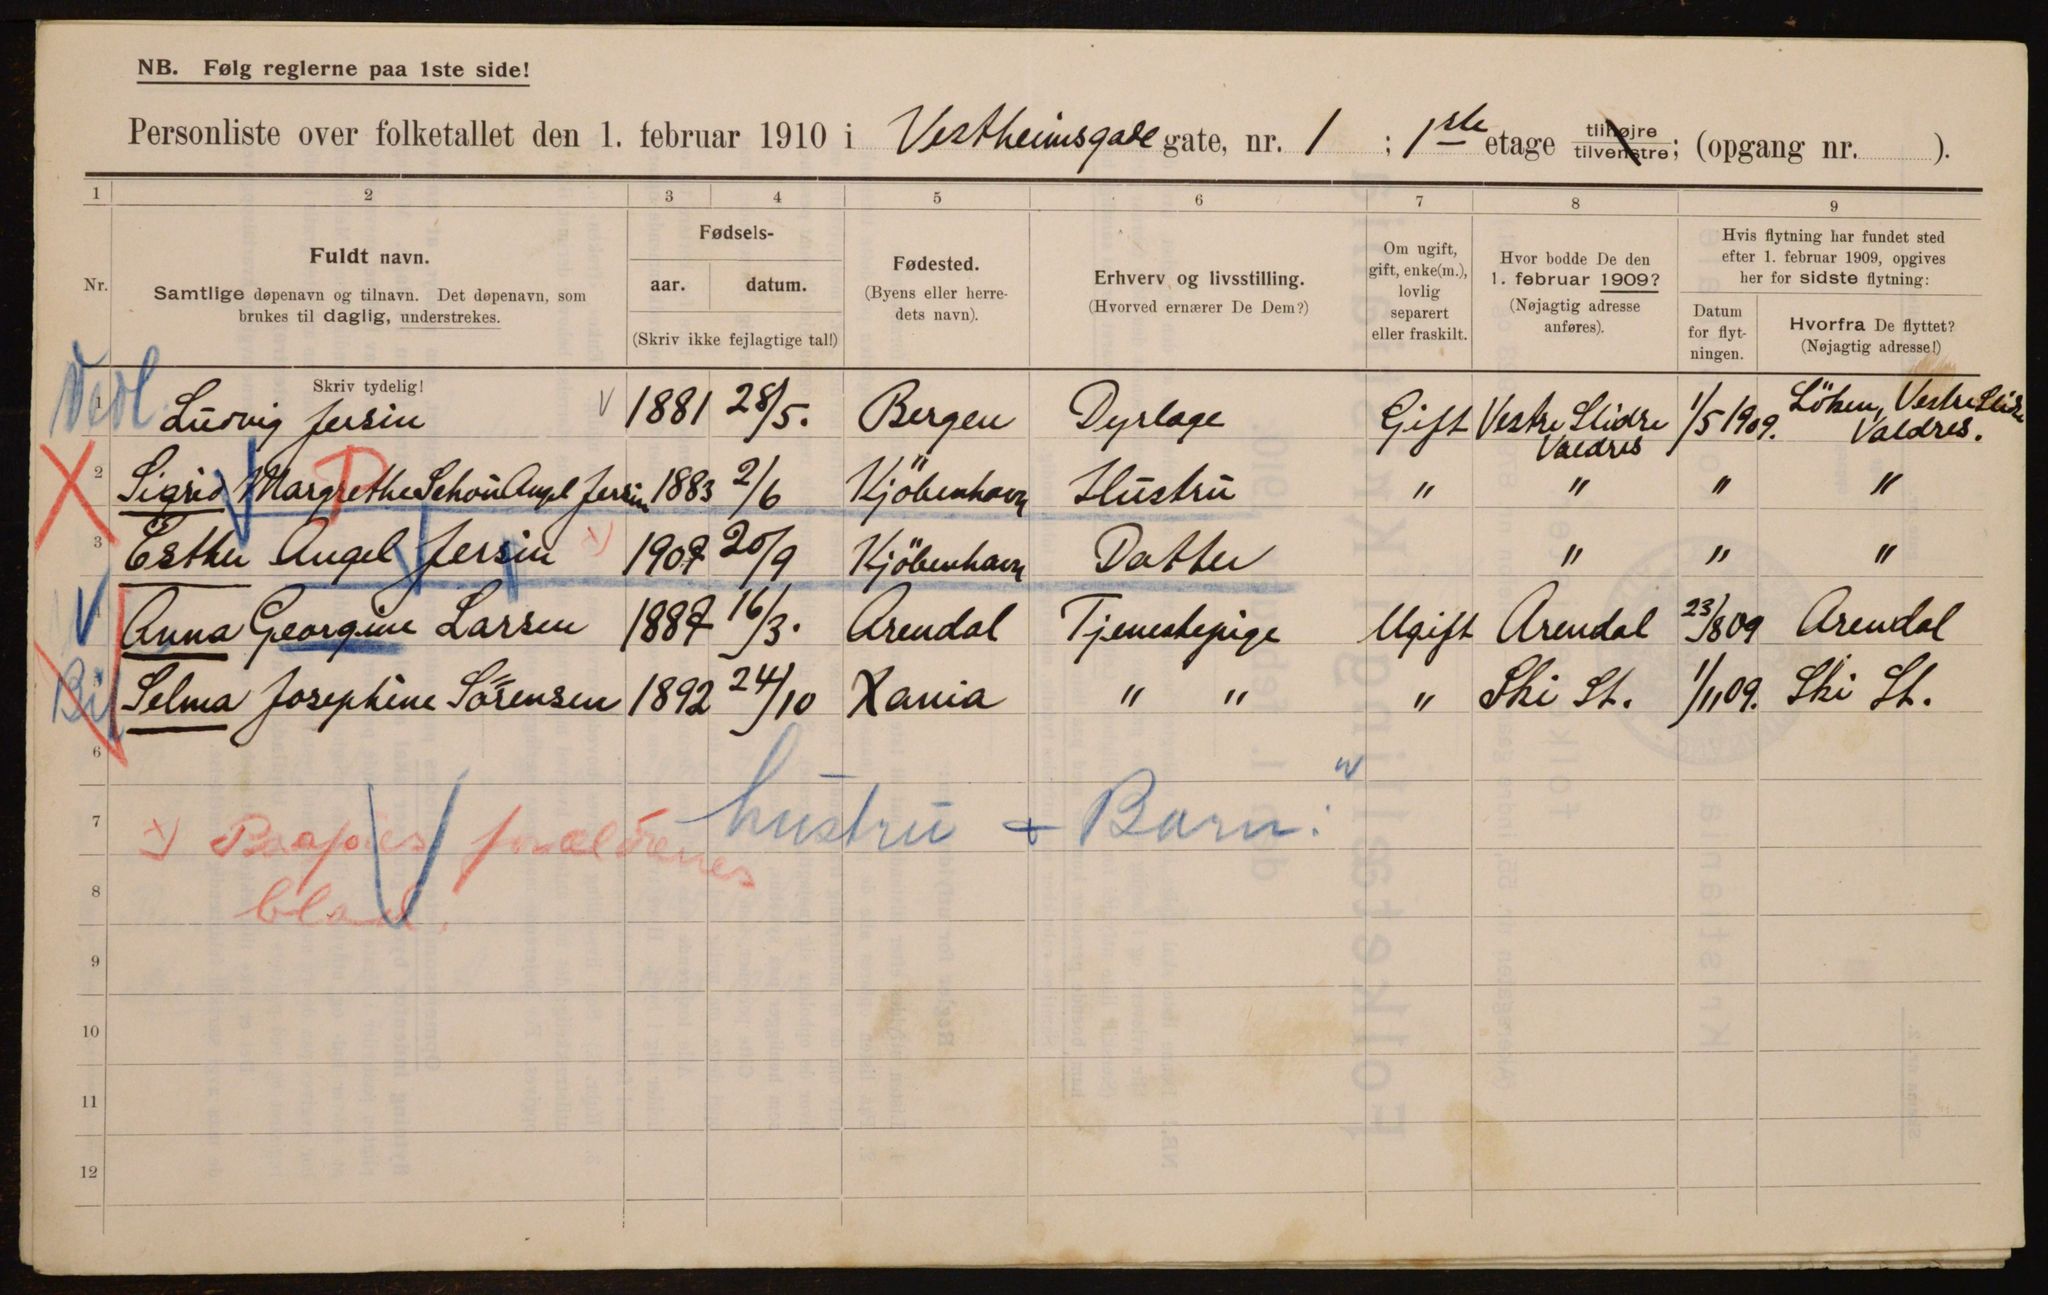 NB. Følg reglerne paa 1ste side!
Personliste over folketallet den 1. februar 1910 i Vestheimsgade gate, nr. 1 ; 1ste etage tilhøjre tilvenstre; (opgang nr. ).
1 2 3 4 5 6 7 8 9
Nr.
Fuldt navn.
Samtlige døpenavn og tilnavn. Det døpenavn, som
brukes til daglig, understrekes.
Skriv tydelig!
Fødsels-
aar. datum.
(Skriv ikke fejlagtige tal!)
Fødested.
(Byens eller herre-
dets navn).
Erhverv og livsstilling.
(Hvorved ernærer De Dem?)
Om ugift,
gift, enke(m.),
lovlig
separert
eller fraskilt.
Hvor bodde De den
1. februar 1909?
(Nøjagtig adresse
anføres).
Hvis flytning har fundet sted
efter 1. februar 1909, opgives
her for sidste flytning:
Datum
for flyt-
ningen.
Hvorfra De flyttet?
(Nøjagtig adresse!)
1 Ludvig Jersin 1881 28/5. Bergen Dyrlæge Gift Vestre Slidre Valdres 1/5 1909. Löken, Vestre Slidre Valdres.
2 Sigrid Margrethe Schou Angel Jersin 1883 2/6 Kjöbenhavn Hustru " " " "
3 Esther Angel Jersin 1907 20/9 Kjöbenhavn Datter " " "
Anna Georgine Larsen 1887 16/3. Arendal Tjenestepige Ugift Arendal 23/8 09 Arendal
Selma Josephine Sörensen 1892 24/10 Xania " " " Ski St. 1/11 09. Ski St.
6
hustru + Barn:
7
x) foræld­renes
8
blad.
9
10
11
12